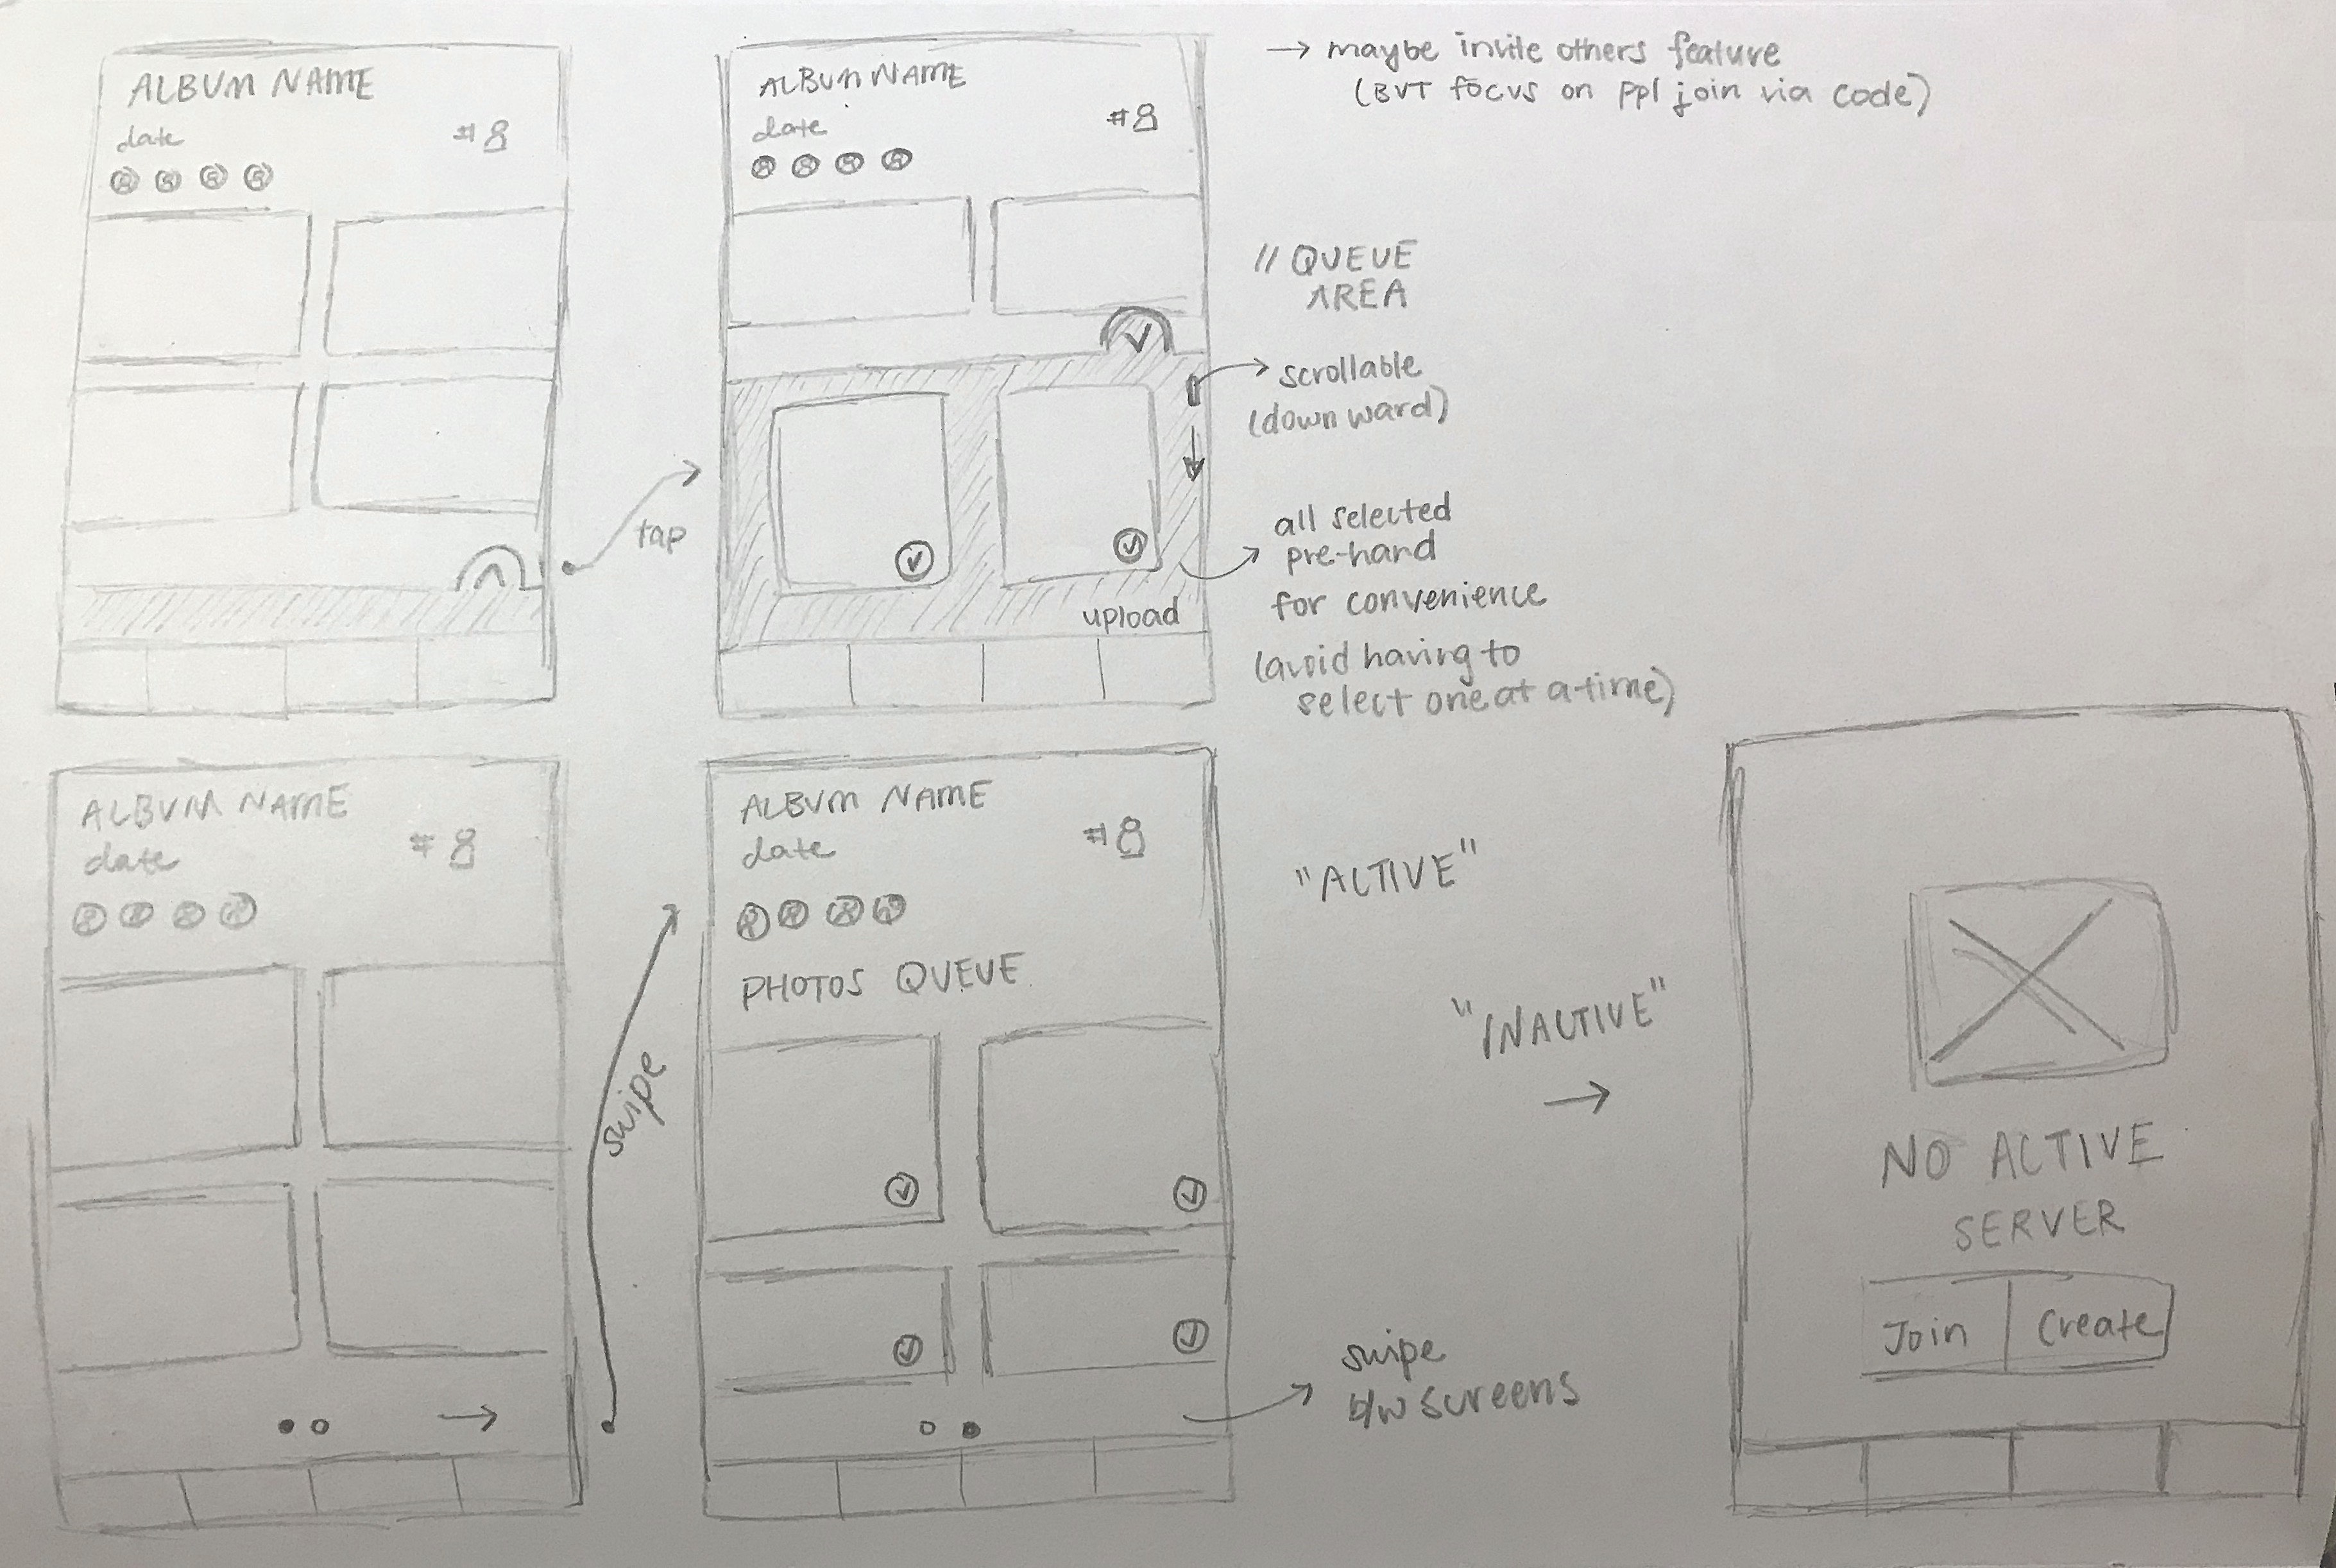 ALBUM NAME
date
#
ALBUM NAME
date
#
→ maybe invite others feature
(BUT focus on ppl join via code)
// QUEUE
AREA
scrollable
(down ward)
tap
all selected
pre-hand
for convenience
(avoid having to
select one at a time)
upload
ALBUM NAME
date
#
swipe
ALBUM NAME
date
#
PHOTOS QUEUE
"ACTIVE"
"INACTIVE"
→
swipe
b/w screens
NO ACTIVE
SERVER
Join
Create